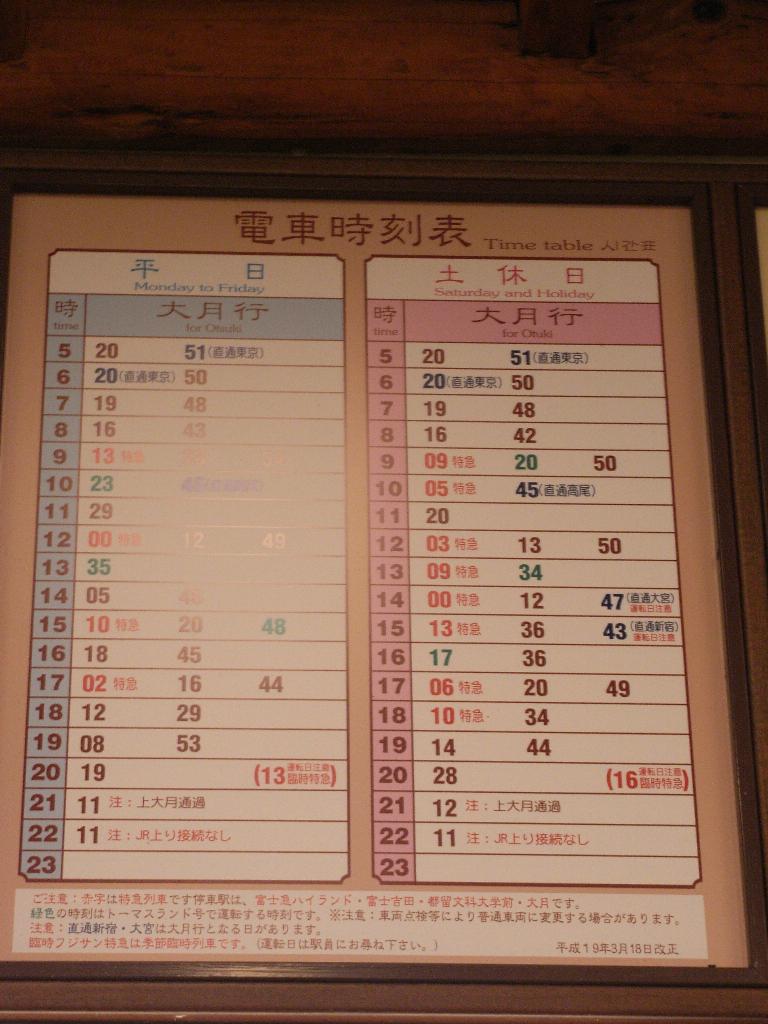 電車時刻表 Time table 시간표
平 日
Monday to Friday
時 time 大月行 for Otsuki
5 20 51(直通東京)
6 20(直通東京) 50
7 19 48
8 16 43
9 13 特急
10 23
11 29
12 00 特急 12 49
13 35
14 05
15 10 特急 20 48
16 18 45
17 02 特急 16 44
18 12 29
19 08 53
20 19 (13 運転日注意 臨時特急)
21 11 注：上大月通過
22 11 注：JR上り接続なし
23
土 休 日
Saturday and Holiday
時 time 大月行 for Otuki
5 20 51(直通東京)
6 20(直通東京) 50
7 19 48
8 16 42
9 09 特急 20 50
10 05 特急 45(直通高尾)
11 20
12 03 特急 13 50
13 09 特急 34
14 00 特急 12 47(直通大宮) 運転日注意
15 13 特急 36 43(直通新宿) 運転日注意
16 17 36
17 06 特急 20 49
18 10 特急 34
19 14 44
20 28 (16 運転日注意 臨時特急)
21 12 注：上大月通過
22 11 注：JR上り接続なし
23
ご注意：赤字は特急列車です停車駅は、富士急ハイランド・富士吉田・都留文科大学前・大月です。
緑色の時刻はトーマスランド号で運転する時刻です。※注意：車両点検等により普通車両に変更する場合があります。
注意：直通新宿・大宮は大月行となる日があります。
臨時フジサン特急は季節臨時列車です。(運転日は駅員にお尋ね下さい。)
平成19年3月18日改正